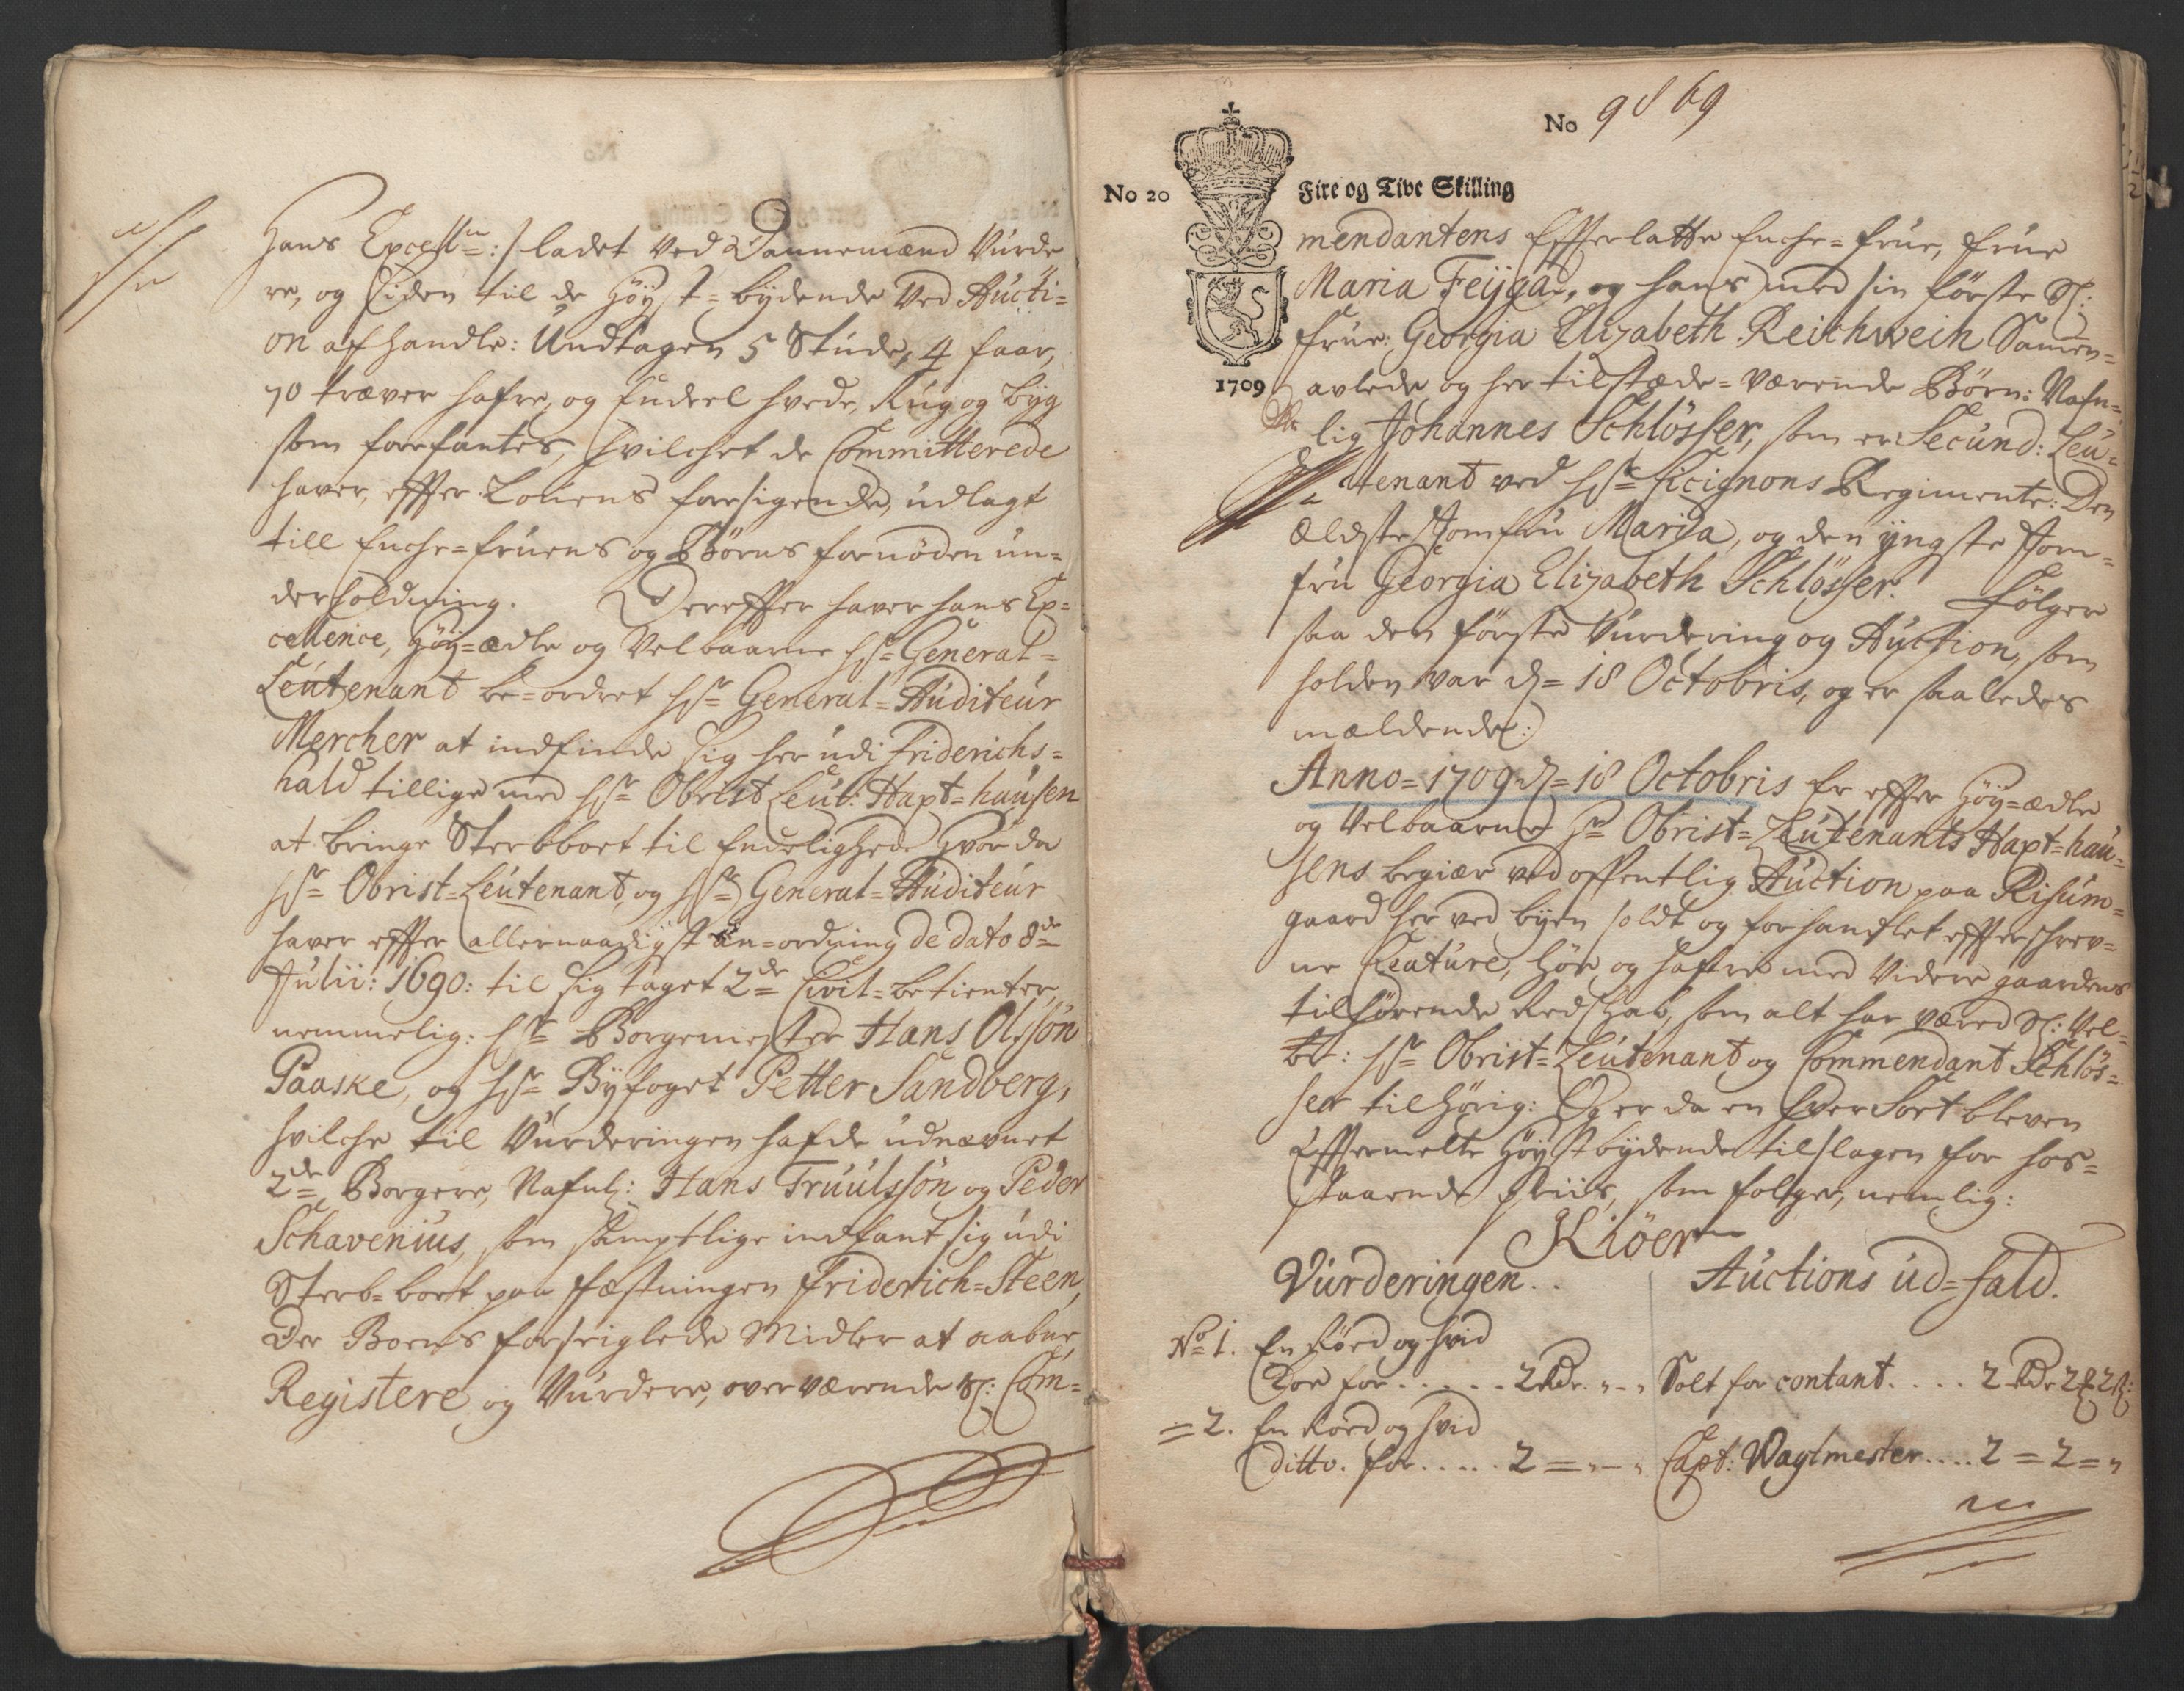 Hans Excellce:/ ladet ved Dannemænd Vurde
re, og siden til de Höyst=bydende Ved Aucti=
on afhandle: Undtagen 5 Stude, 4 faar,
70 træver hafre, og Endeel hvede, Rug og byg
som forefantes, hvilchet de Committerede
haver, effter Lovens forsigende, udlagt
till Enche=fruens og Börns fornöden un=
derholdning. Dereffter haver hans Ex=
cellence, Höy=ædle og Velbaarne Hr General=
Leutenant be=ordret Hr General=Auditeur
Mercher at indfinde sig her udi Friderichs=
hald tillige med Hr Obrist Leut: Haxt=hausen
at bringe Sterbboet til Endelighed. Hvor da
Hr Obrist=Leutenant, og Hr General=Auditeur
haver effter allernaadigst an=ordning de dato 8de
Julii: 1690: til sig taget 2de Civil=betienter,
nemmelig: Hr Borgemester Hans Olssön
Paaske, og Hr Byfoget Petter Sandberg,
hvilche til Vurderingen hafde udnævnet
2de Borgere, Nafnl: Hans Truulssön og Peder
Schavenius, som samptlige indfant sig udi
Sterb=boet paa Fæstningen Friderich=Steen,
Der Boens forseiglede Midler at aabne,
Registere og Vurdere, overværende Sl: Com=
No 9869
No 20
Fire og Tive Skilling
1709
mendantens Effterlatte Enche=frue, Frue
Maria Feÿga, og hans med sin förste Sl:
Frue: Georgia Elizabeth Reichwein Samen=
avlede og her tilstæde=værende Börn: Nafn=
lig Johannes Schlösser, som er Secund: Leu=
tenant ved Hr Cicignons Regimente: Den
Ældste Jomfru Maria, og den yngste Jom=
fru Georgia Elizabeth Schlösser. Fölger
saa den förste Vurdering og Auction, som
holden var d= 18 Octobris, og er saaledes
mældende:
Anno=1709 d=18 Octobris Er effter Höy=ædle
og Velbaarne Hr Obrist=Leutenants Haxt=hau=
sens begiær ved offentlig Auction paa Risum=
gaard her ved byen soldt og forhandlet effterschrev=
ne Creature, Höe og hafre med Videre gaardens
tilhörende Redschab, som alt har væred Sl: Vel=
br: Hr Obrist=Leutenant og Commendant Schlös=
ser tilhörig: Og er da en hver Sort bleven
Effternelte Höystbydende tilslagen for hos=
staaende Priis, som fölger, nemlig:
Kiöer
Vurderingen.. Auctions ud=fald.
No 1. En Röed og hvid
Koe for..... 2 Rdr. "-" Solt for contant.... 2 Rdr 2 ß 2 ß:
= 2. En Röed og hvid
ditto. for..... 2 = "-" Capt: Wagtmester.... 2 = 2 = "